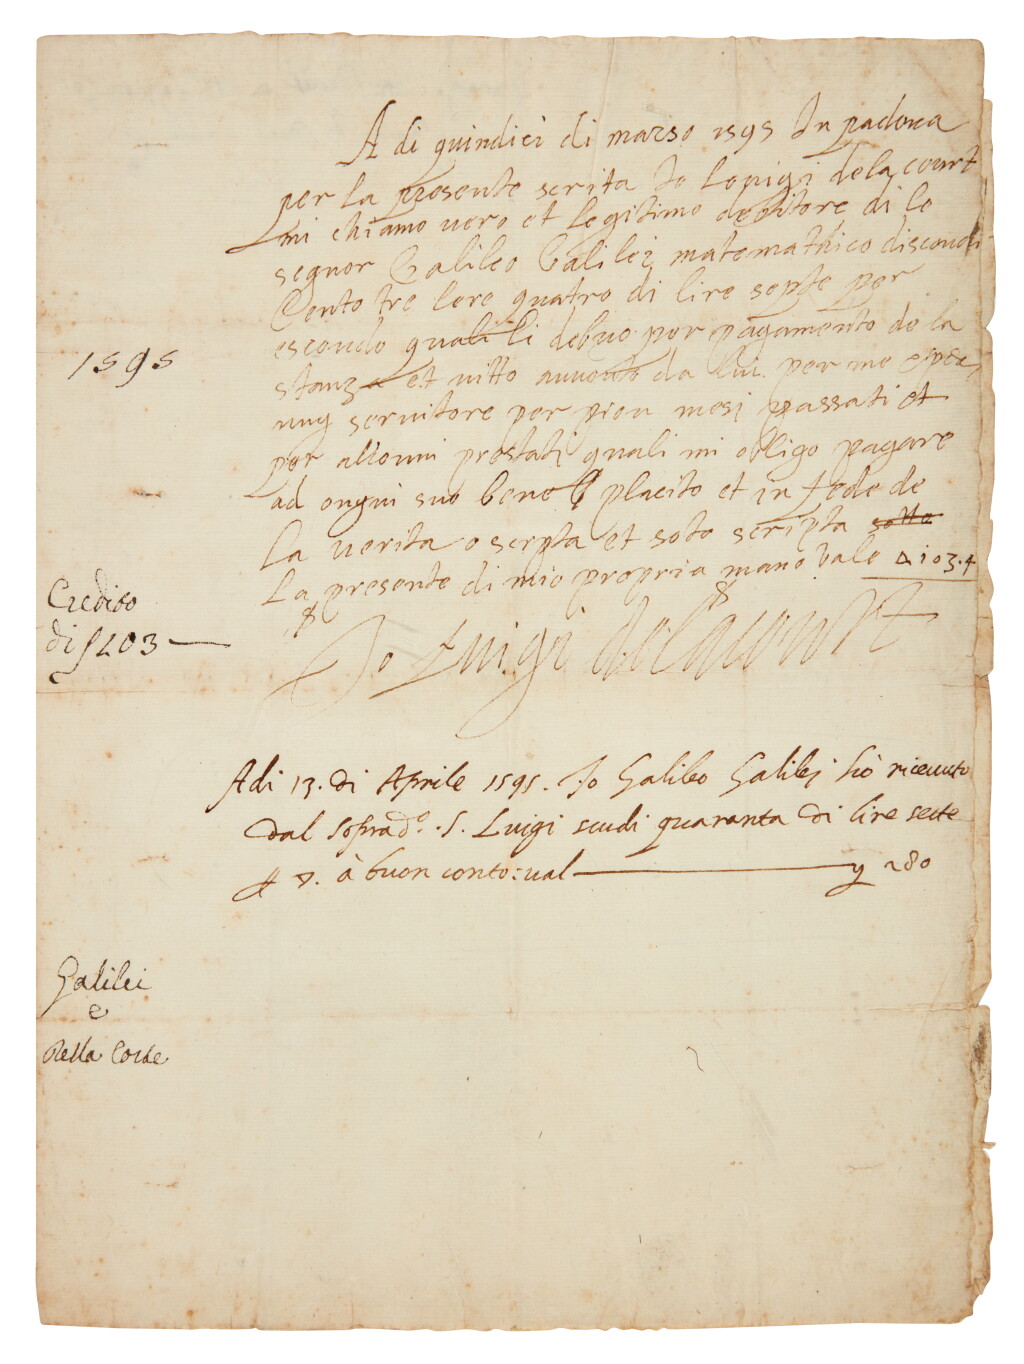 A di quindici di marso 1595 In padova
per la presente scrita Io Lovigi dela court
mi chiamo vero et legitimo debitore di le
segnor Galileo Galilei matemathico discoudi
Cento tre lere quatro di lire septe per
escondo quali li debuo per pagamento de la
stanza et vitto auvento da lui per me e per
ung servitore per piou mesi passati et
per allouni prestati quali mi obligo pagare
ad ongni suo bene placito et in fede de
la verita o scrpta et soto scripta sotto
la presente di mio propria mano vale ▵ 103.4
Io Luigi delacourt
1595
Credito
di ſ 103
Adi 13. di Aprile 1595. Io Galileo Galilej hò riceuuto
dal soprad.o S. Luigi scudi quaranta di lire sette
à buon conto: val 280
Galilei
e
Della Corte